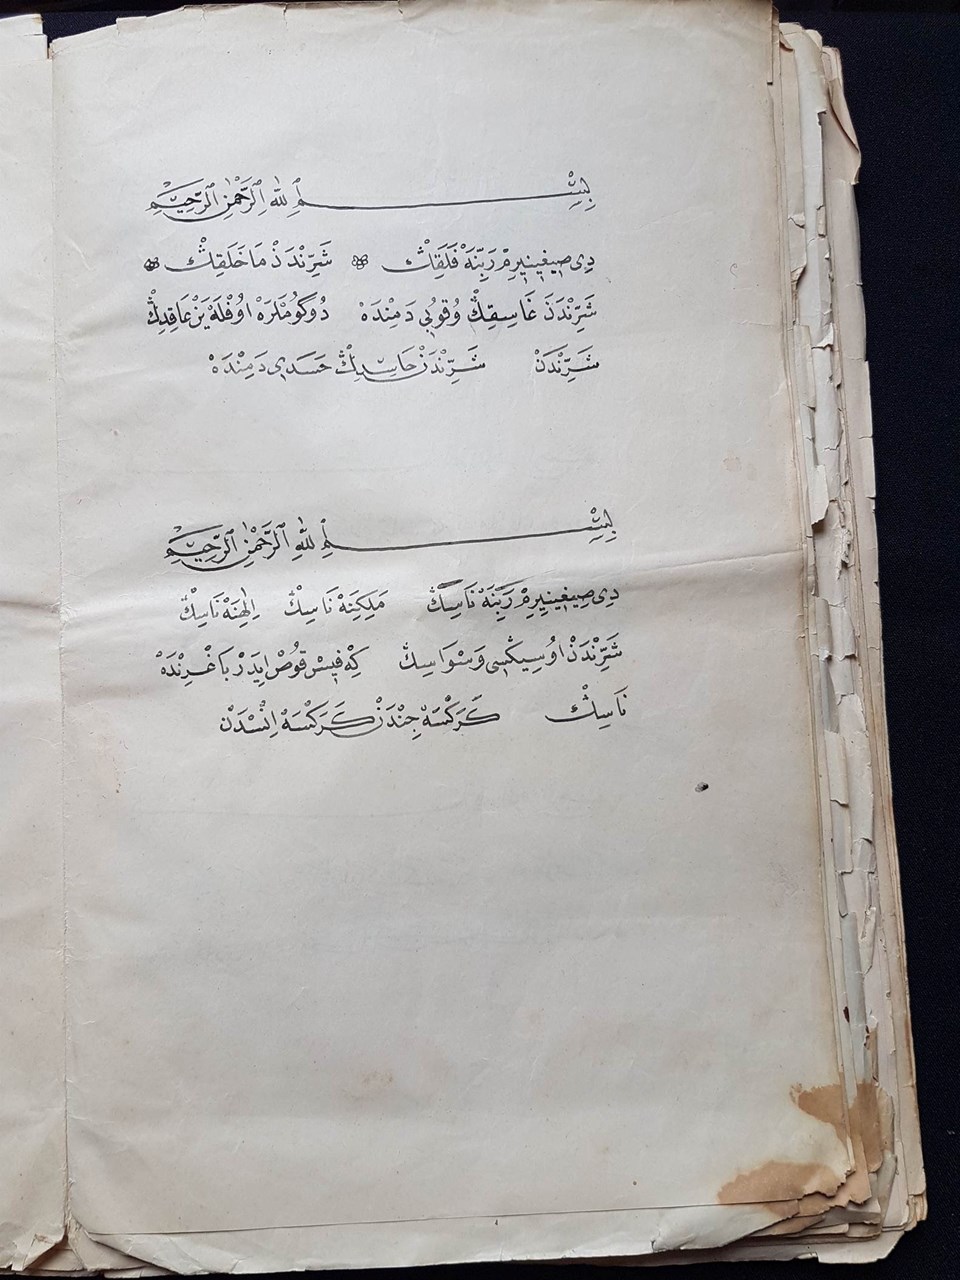 بِسْمِ اللّٰهِ الرَّحْمٰنِ الرَّحِيمِ
دِى صِيغِينِيرِمْ رَبِّنَهْ فَلَقِڭْ شَرِّنْدَنْ مَا خَلَقِڭْ
شَرِّنْدَنْ غَاسِقِڭْ وُقُوبِي دَمِنْدَهْ دُوگُومْلَرَهْ اوُفْلَهْ يَنْ عَاقِدِڭْ
شَرِّنْدَنْ شَرِّنْدَنْ حَاسِدِڭْ حَسَدِى دَمِنْدَهْ
بِسْمِ اللّٰهِ الرَّحْمٰنِ الرَّحِيمِ
دِى صِيغِينِيرِمْ رَبِّنَهْ نَاسِڭْ مَلِكِنَهْ نَاسِڭْ اِلٰهِنَهْ نَاسِڭْ
شَرِّنْدَنْ اوُ سِيڭْسِى وَسْوَاسِڭْ كِهْ فِيسْ قوُصْ اِيدَرْ بَاغْرِنْدَهْ
نَاسِڭْ كَرَكْسَهْ جِنْدَنْ كَرَكْسَهْ اِنْسْدَنْ